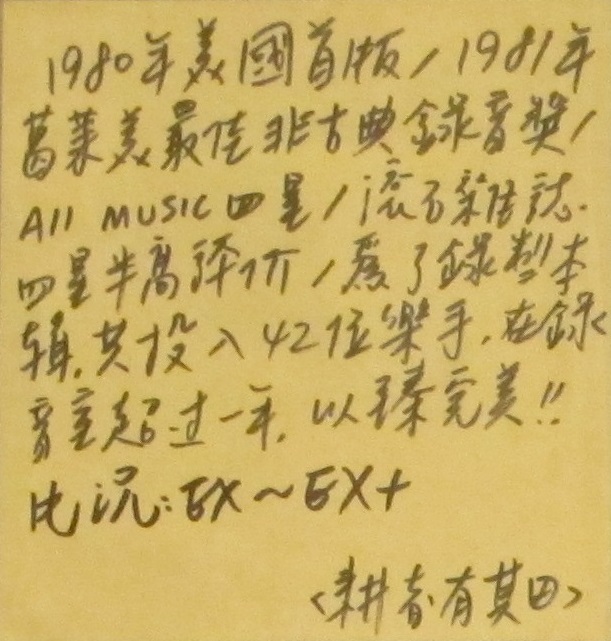 1980年美國首版/1981年
葛萊美最佳非古典錄音獎/
All MUSIC四星/滾石雜誌.
四星半高評价/為了錄製本
輯,共投入42位樂手,在錄
音室超过一年,以臻完美!!
片況:EX~EX+
<耕者有其田>